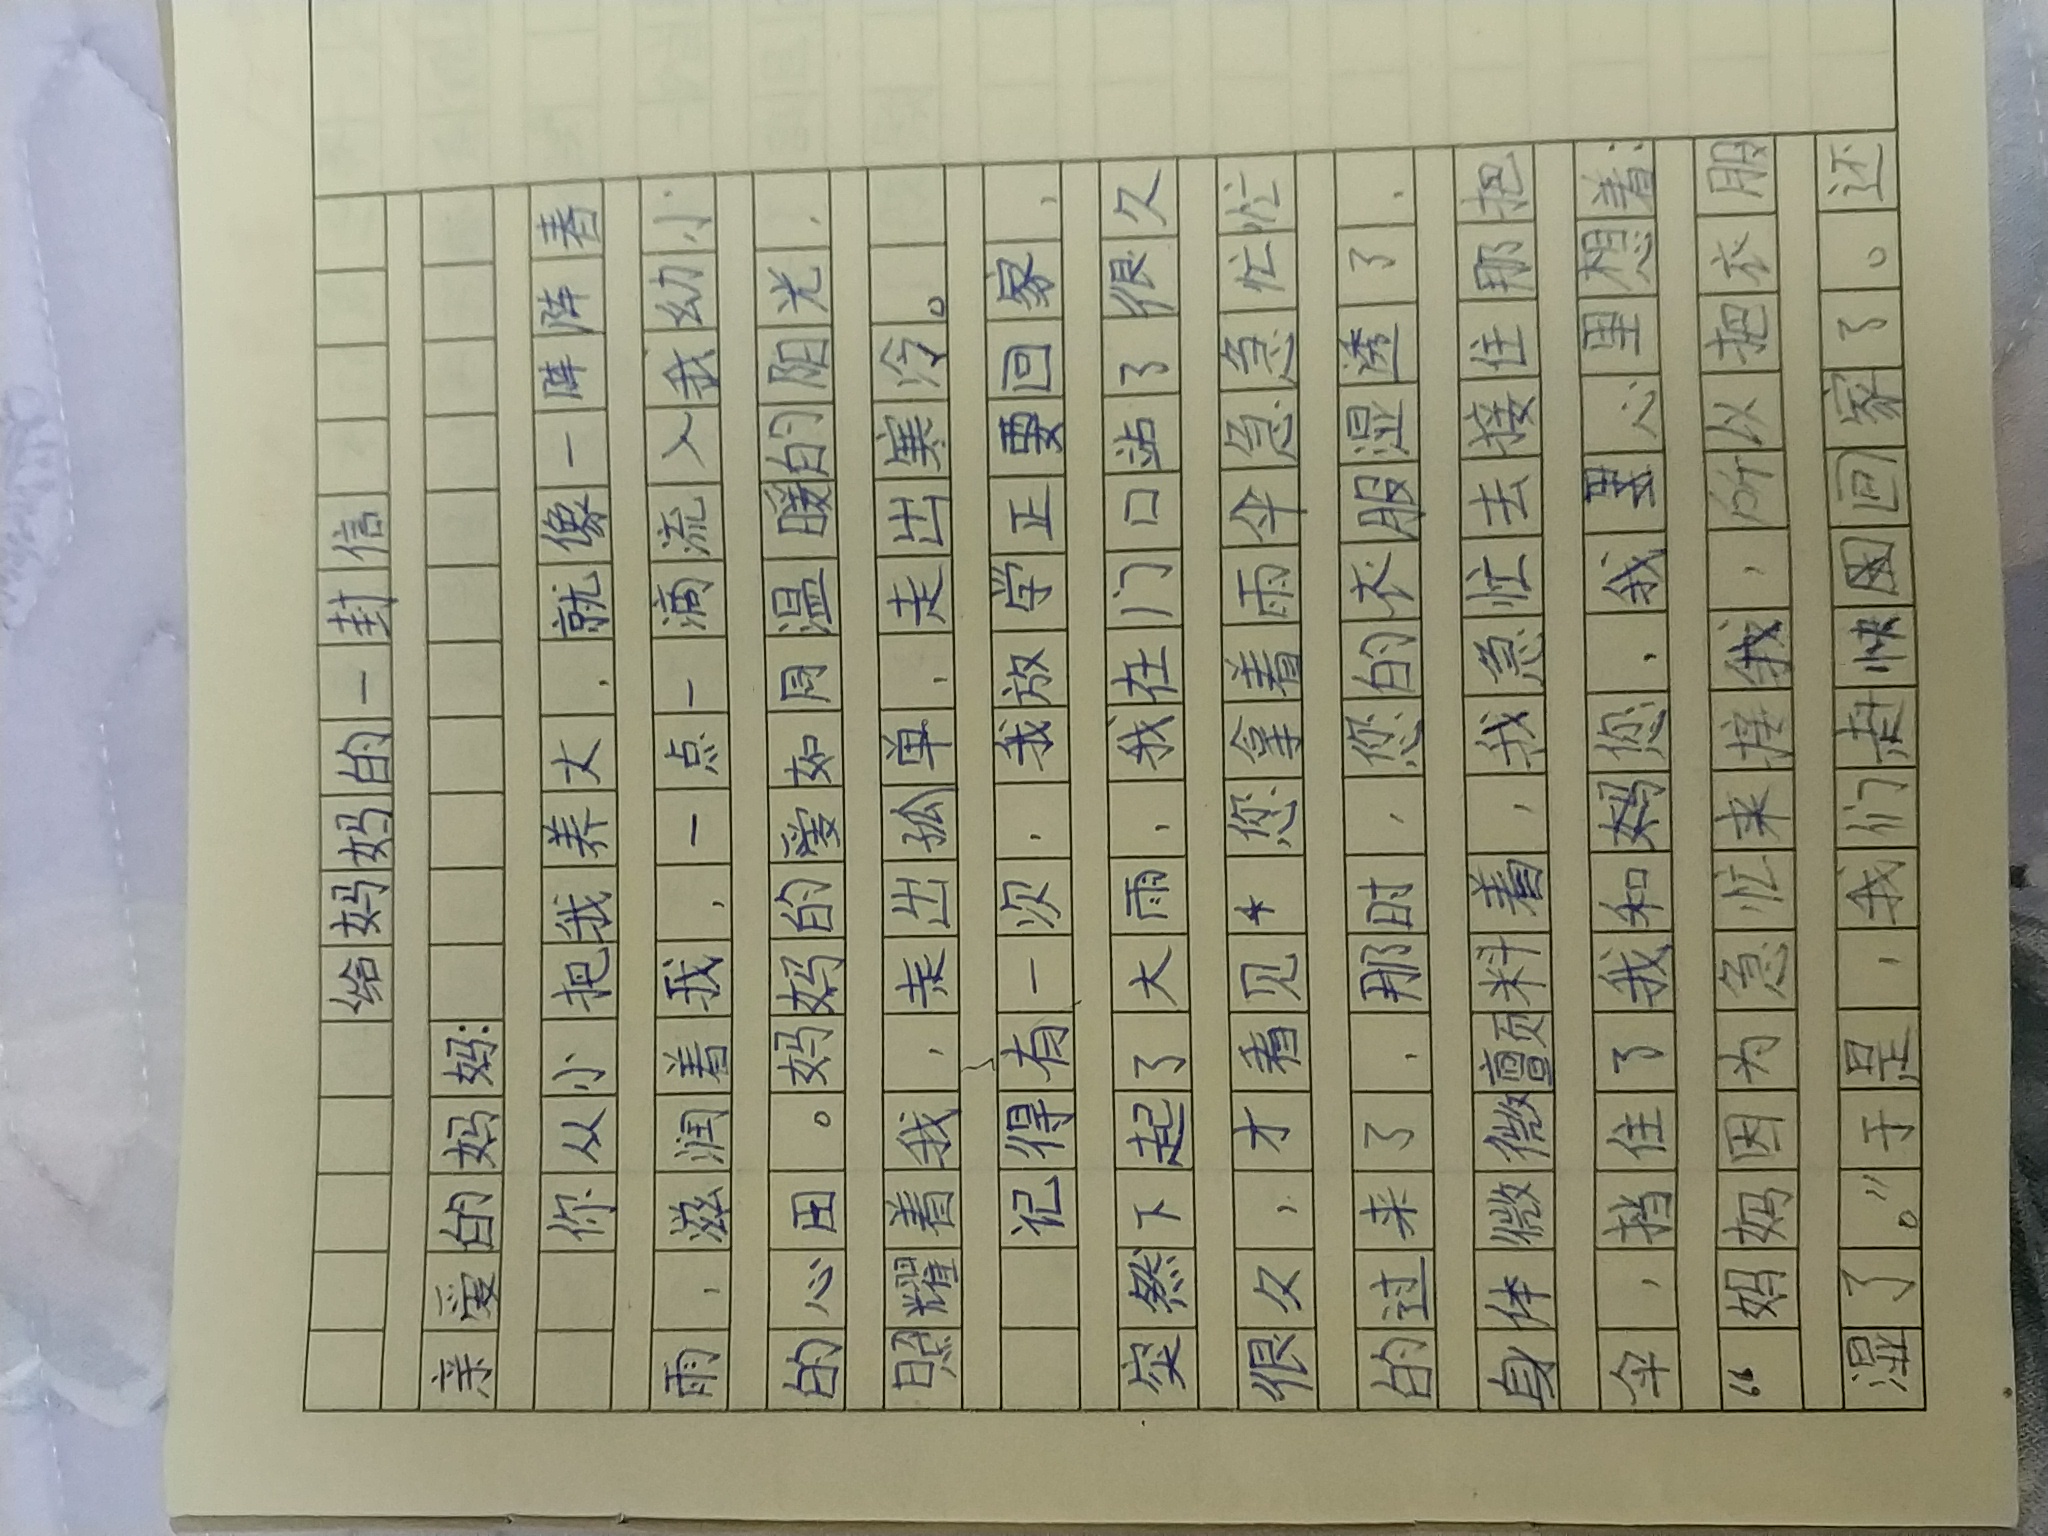 给妈妈的一封信
亲爱的妈妈:
你从小把我养大,就像一阵阵春
雨,滋润着我,一点一滴流入我幼小
的心田。妈妈的爱如同温暖的阳光,
照耀着我,走出孤单,走出寒冷。
记得有一次,我放学正要回家,
突然下起了大雨,我在门口站了很久
很久,才看见你您拿着雨伞急急忙忙
的过来了,那时,您的衣服湿透了,
身体微微颤抖着,我急忙去接住那把
伞,挡住了我和妈妈您,我心里想着:
“妈妈因为急忙来接我,所以把衣服
湿了。”于是,我们赶快回家了。还